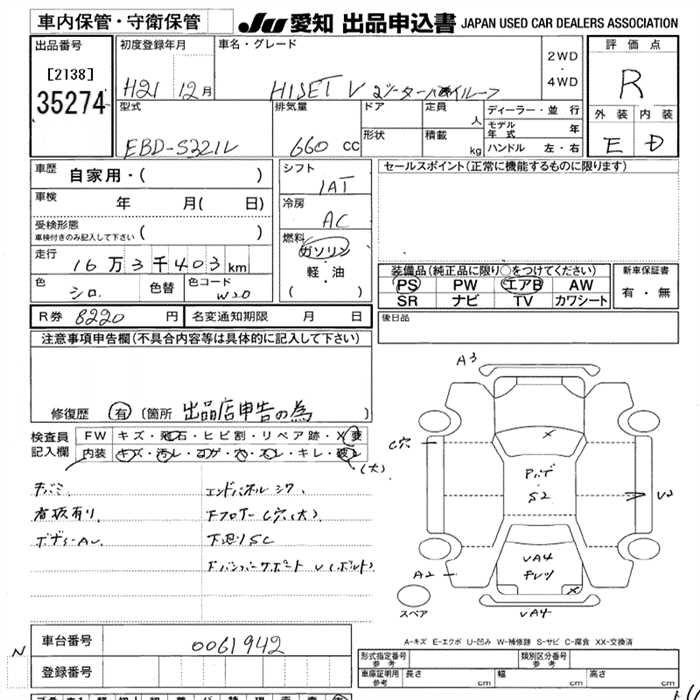 車内保管・守衛保管
JU 愛知 出品申込書 JAPAN USED CAR DEALERS ASSOCIATION
出品番号
[2138]
35274
初度登録年月
H21 12月
車名・グレード
HISET V
2WD
・
4WD
評価点
R
外装 内装
E D
型式
EBD-S321V
排気量
660 cc
ドア
定員
人
形状
積載
kg
ディーラー・並行
モデル年式
年
ハンドル 左・右
車歴
自家用・( )
車検
年 月( 日)
受検形態
車検付きのみ記入して下さい ( )
走行
16万3千403km
色
シロ
色替
色コード
W20
シフト
1AT
冷房
AC
燃料
ガソリン
・
軽・油
( )
セールスポイント(正常に機能するものに限ります)
装備品(純正品に限り○をつけてください)
PS PW エアB AW
SR ナビ TV カワシート
新車保証書
有・無
R券 8220 円
名変通知期限 月 日
後日品
注意事項申告欄(不具合内容等は具体的に記入して下さい)
修復歴 有 (箇所 出品店申告の為 )
検査員
記入欄
FW キズ・飛石・ヒビ割・リペア跡・X要
内装 キズ・汚レ・コゲ・穴・スレ・キレ・破レ
(大)
看板有り
エンドパネルシワ
下フロアーC穴(大)
下廻りSC
A3
C穴
X
Pボデ
S2
V2
A2
VA4
X
VA4
スペア
A-キズ E-エクボ U-凹み W-補修跡 S-サビ C-腐食 XX-交換済
N
車台番号
0061942
登録番号
形式指定番号
参考
類別区分番号
参考
車庫証明用
参考
長さ cm
幅 cm
高さ cm